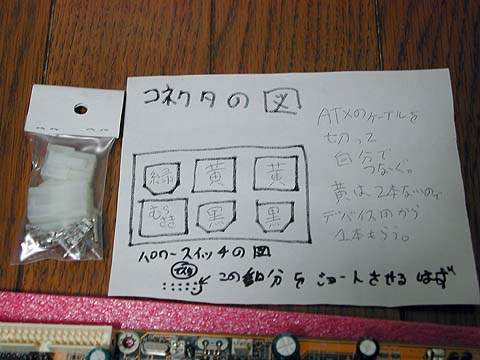 コネクタの図
ATXのケーブルを
切って
自分で
つなぐ。
黄は2本ないので
デバイス用から
1本もらう。
緑 黄 黄
むらさき 黒 黒
パワースイッチの図
この部分をショートさせるはず